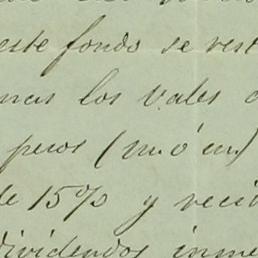 este fondo se rest
nas los vales
pesos (m ó m)
de 15% y reci
dividendos inme